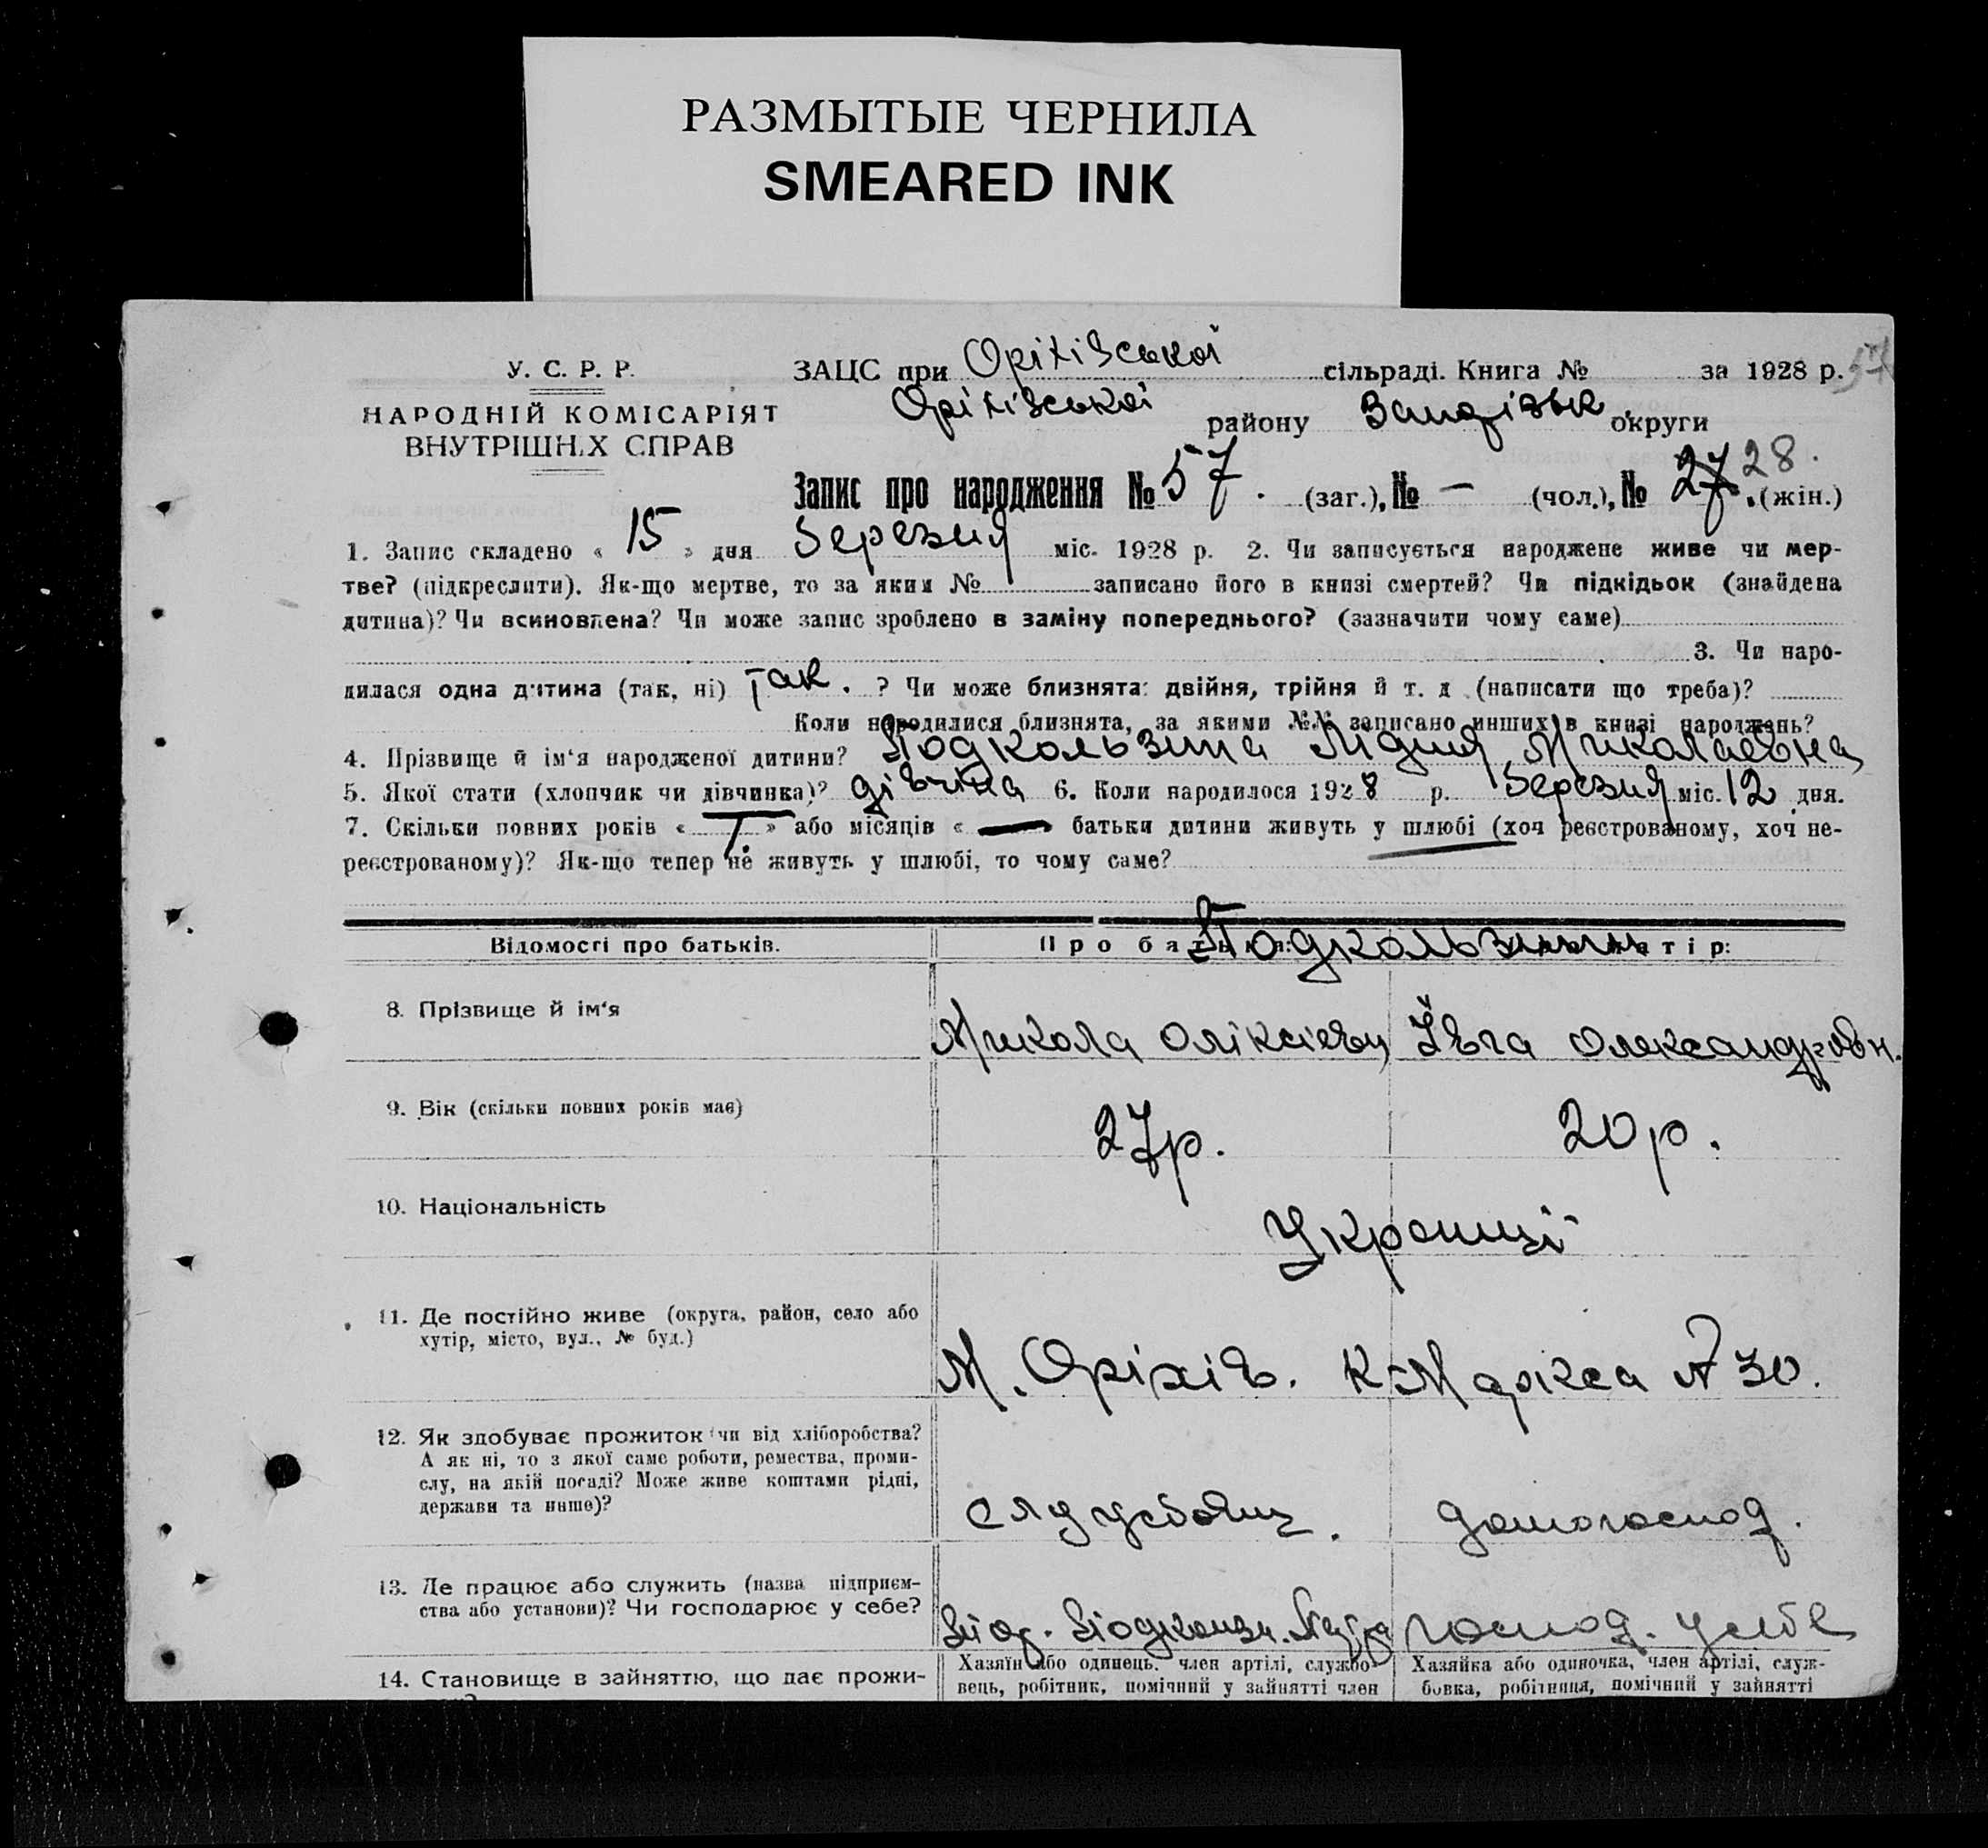 РАЗМЫТЫЕ ЧЕРНИЛА
SMEARED INK
У. С. Р. Р.
НАРОДНІЙ КОМІСАРІЯТ
ВНУТРІШНІХ СПРАВ
ЗАЦС при Оріхівської сільраді. Книга № за 1928 р. 57
Оріхівської району Запорізьк. округи
Запис про народження № 57. (заг.), № — (чол.), № 27 28. (жін.)
1. Запис складено « 15 » дня Березня міс. 1928 р. 2. Чи записується народжене живе чи мер-
тве? (підкреслити). Як-що мертве, то за яким № записано його в книзі смертей? Чи підкідьок (знайдена
дитина)? Чи всиновлена? Чи може запис зроблено в заміну попереднього? (зазначити чому саме)
3. Чи наро-
дилася одна дитина (так, ні) Так. ? Чи може близнята: двійня, трійня й т. д. (написати що треба)?
Коли народилися близнята, за якими №№ записано инших в книзі народжень?
4. Прізвище й ім‘я народженої дитини? Подкользина Лідия Миколаевна
5. Якої стати (хлопчик чи дівчинка)? дівчіна 6. Коли народилося 1928 р. Березня міс. 12 дня.
7. Скільки повних років « 1. » або місяців « — » батьки дитини живуть у шлюбі (хоч реєстрованому, хоч не-
реєстрованому)? Як-що тепер не живуть у шлюбі, то чому саме?
Відомості про батьків. Про батька: Про матір:
Подкользини
8. Прізвище й ім‘я Микола Оліксіевич Ївга Олександровн.
9. Вік (скільки повних років має) 27р. 20р.
10. Національність Українці
11. Де постійно живе (округа, район, село або
хутір, місто, вул., № буд.)
М. Оріхів. К. Маркса № 30.
12. Як здобуває прожиток (чи від хліборобства?
А як ні, то з якої саме роботи, ремества, проми-
слу, на якій посаді? Може живе коштами рідні,
держави та инше)?
Службовец. домогоспод.
13. Де працює або служить (назва підприєм-
ства або установи)? Чи господарює у себе?
господ. у себе
14. Становище в зайняттю, що дає прожи-
Хазяїн або одинець, член артілі, службо-
вець, робітник, помічний у зайнятті член
Хазяйка або одиночка, член артілі, служ-
бовка, робітниця, помічний у зайнятті